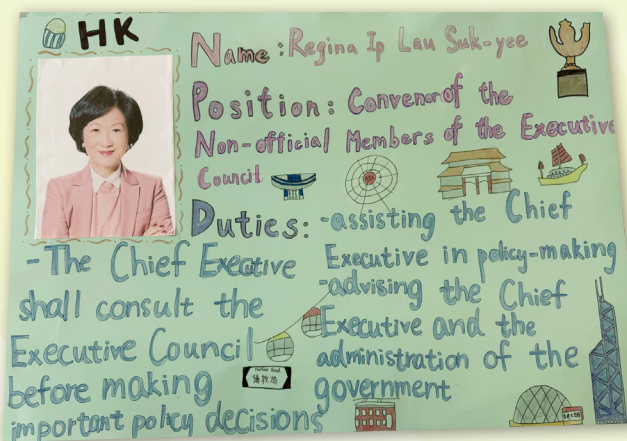 HK
Name: Regina Ip Lau Suk-yee
Position: Convenor of the
Non-official Members of the Executive
Council
Duties:
-assisting the Chief
Executive in policy-making
-advising the Chief
Executive and the
administration of the
government
-The Chief Exective
shall consult the
Executive Council
before making
important policy decisions
Nathan Road
彌敦道